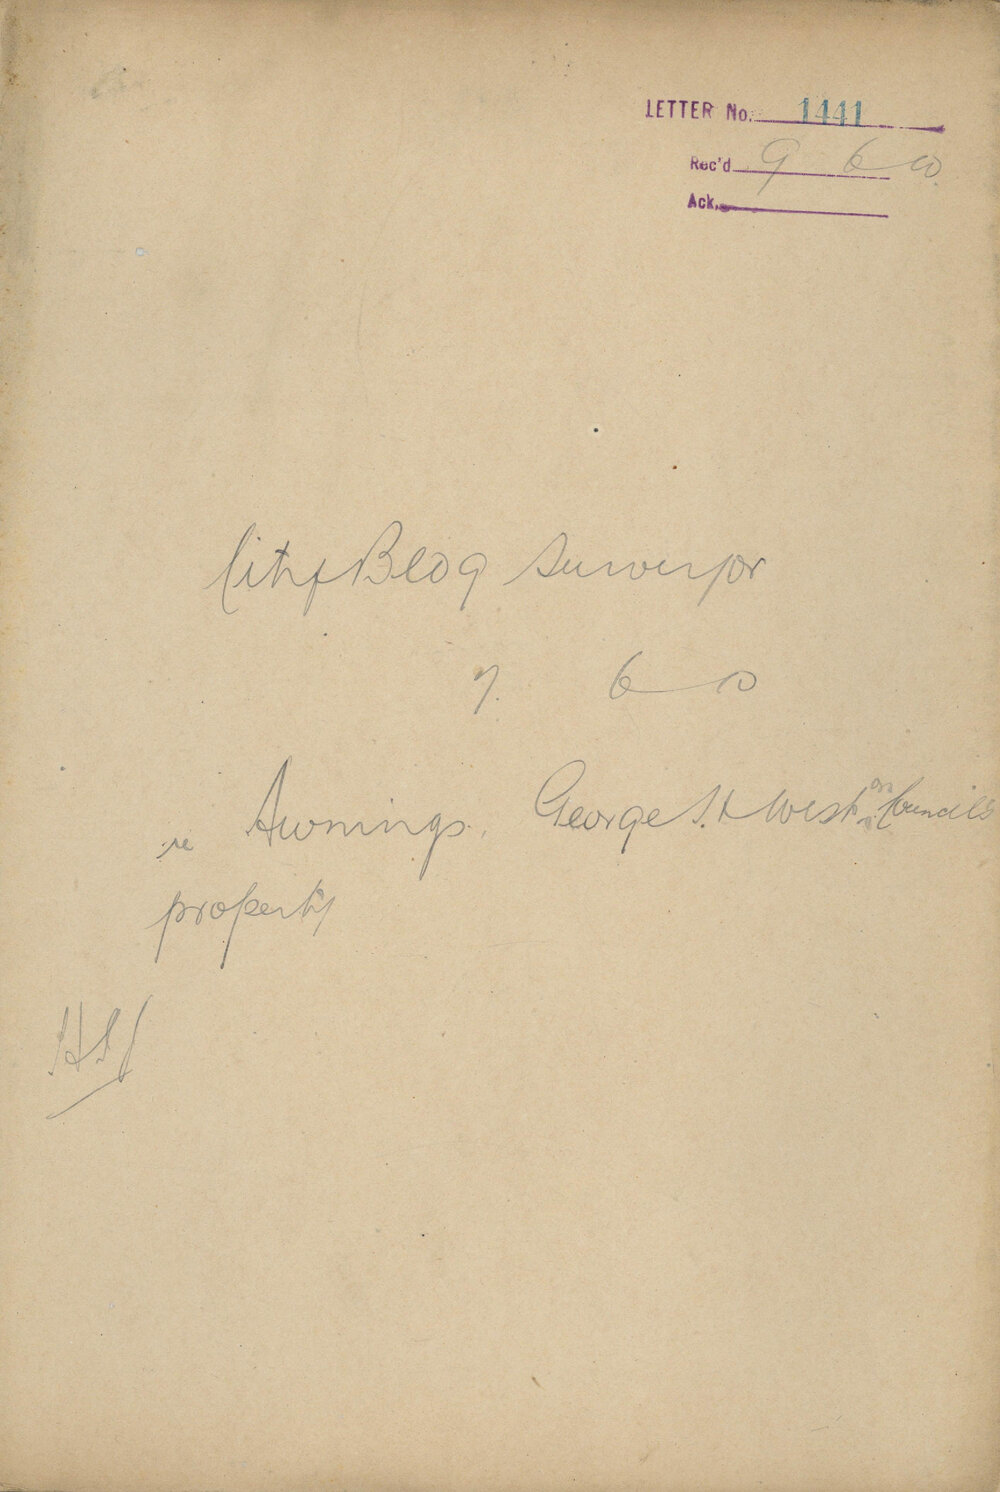 LETTER No. 1441
Rec'd 9 6 10.
Ack.
City Bldg Surveyor
7. 6 10
re Awnings. George St West on Council's
property